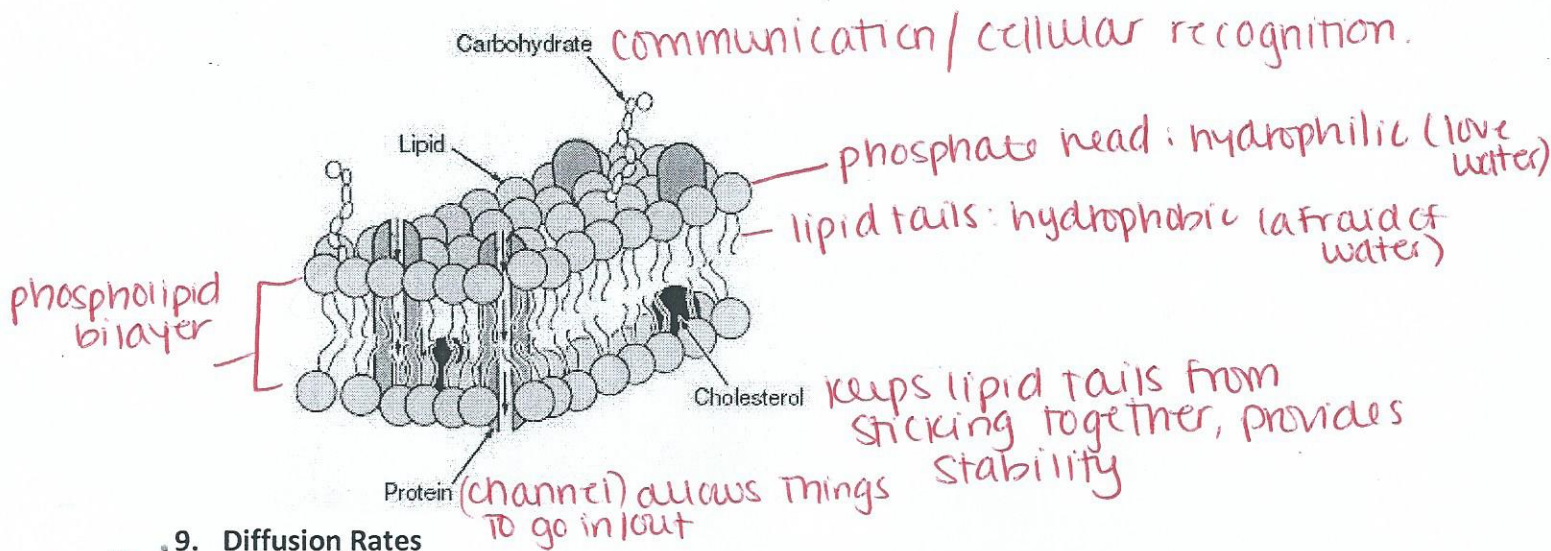 Carbohydrate communication/cellular recognition.
Lipid
phosphate head: hydrophilic (love
water)
lipid tails: hydrophobic (afraid of
water)
phospholipid
bilayer
Cholesterol keeps lipid tails from
sticking together, provides
stability
Protein (channel) allows things
to go in/out
9. Diffusion Rates